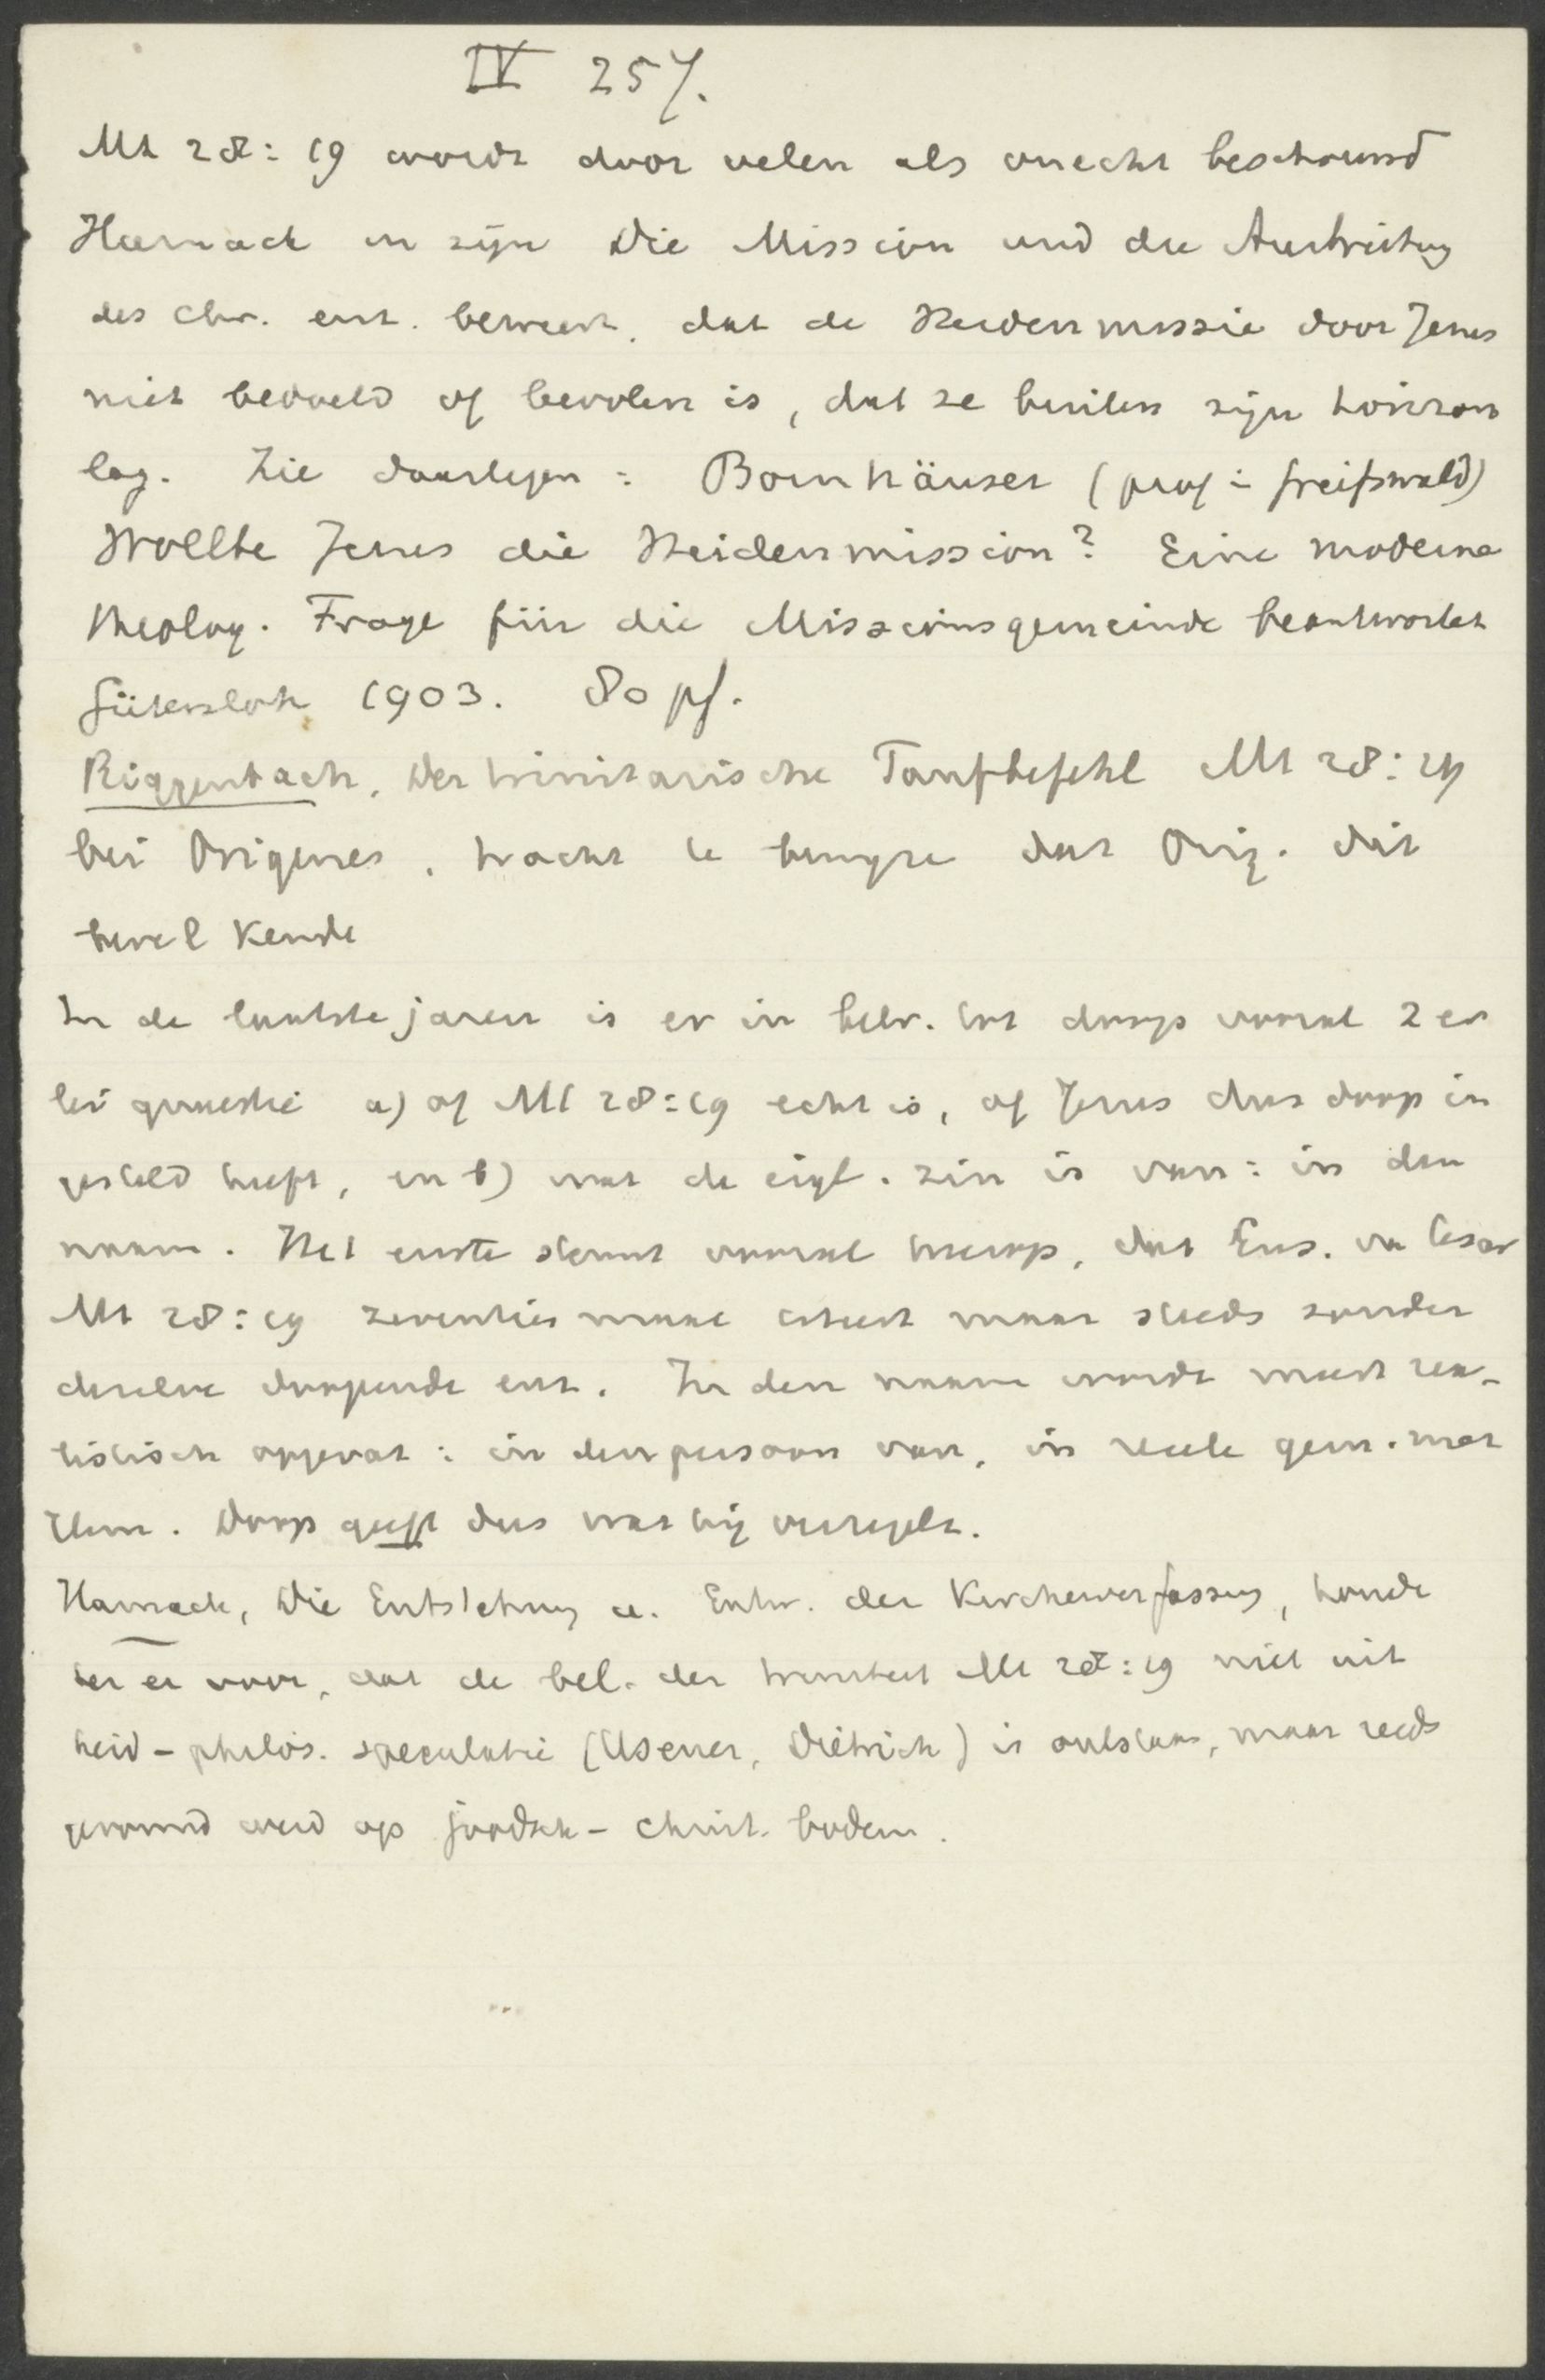 IV 257.
Mt 28:19 wordt door velen als onecht beschouwd
Harnack in zijn Die Mission und die Ausbreitung
des Chr. enz. beweert, dat de Heidenmissie door Jezus
niet bedoeld of bevolen is, dat ze buiten zijn horizon
lag. Zie daartegen: Bornhäuser (prof in Greifswald)
Wollte Jesus die Heidenmission? Eine moderne
theolog. Frage für die Missionsgemeinde beantwortet
Gütersloh 1903. 80 pf.
Riggenbach, Der trinitarische Taufbefehl Mt 28:19
bei Origenes, tracht te betoogen dat Orig. dit
bevel kende
In de laatste jaren is er in betr. tot doop vooral 2 er
lei quaestie a) of Mt 28:19 echt is, of Jezus dus doop in
gesteld heeft, en b) wat de eigl. zin is van: in den
naam. Het eerste steunt vooral hierop, dat Eus. v Cesar
Mt 28:19 zeventien maal citeert maar steeds zonder
dezelve doopende enz. In den naam wordt meest rea-
listisch opgevat: in den persoon van, in reele gem. met
Hem. Doop geeft dus wat hij verzegelt.
Harnack, Die Entstehung u. Entw. der Kirchenverfassung, houdt
het er voor, dat de bel. der triniteit Mt 28:19 niet uit
heid-philos. speculatie (Usener, Dietrich) is ontstaan, maar reeds
gevormd werd op joodsch-christ. bodem.